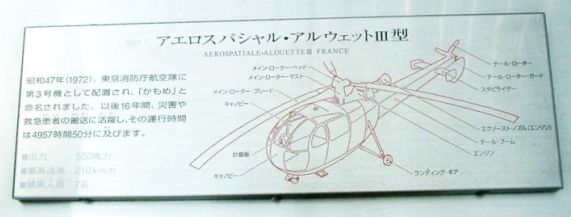 (1972) アエロスパシャル・アルウェットIII型
AEROSPATIALE-ALOUETTE III FRANCE
昭和47年(1972)、東京消防庁航空隊に
第3号機として配置され、「かもめ」と
命名されました。以後16年間、災害や
救急患者の搬送に活躍し、その運行時間
は4957時間50分に及びます。
■出力 550馬力
■最高速度 210km/h
■搭乗人員 7名
メイン・ローター・ヘッド
メイン・ローター・マスト
メイン・ローター・ブレード
キャノピー
計器板
キャノピー
テール・ローター
テール・ローター・ガード
スタビライザー
エクゾーストノズル(エンジン)
テール・ブーム
エンジン
ランディング・ギア